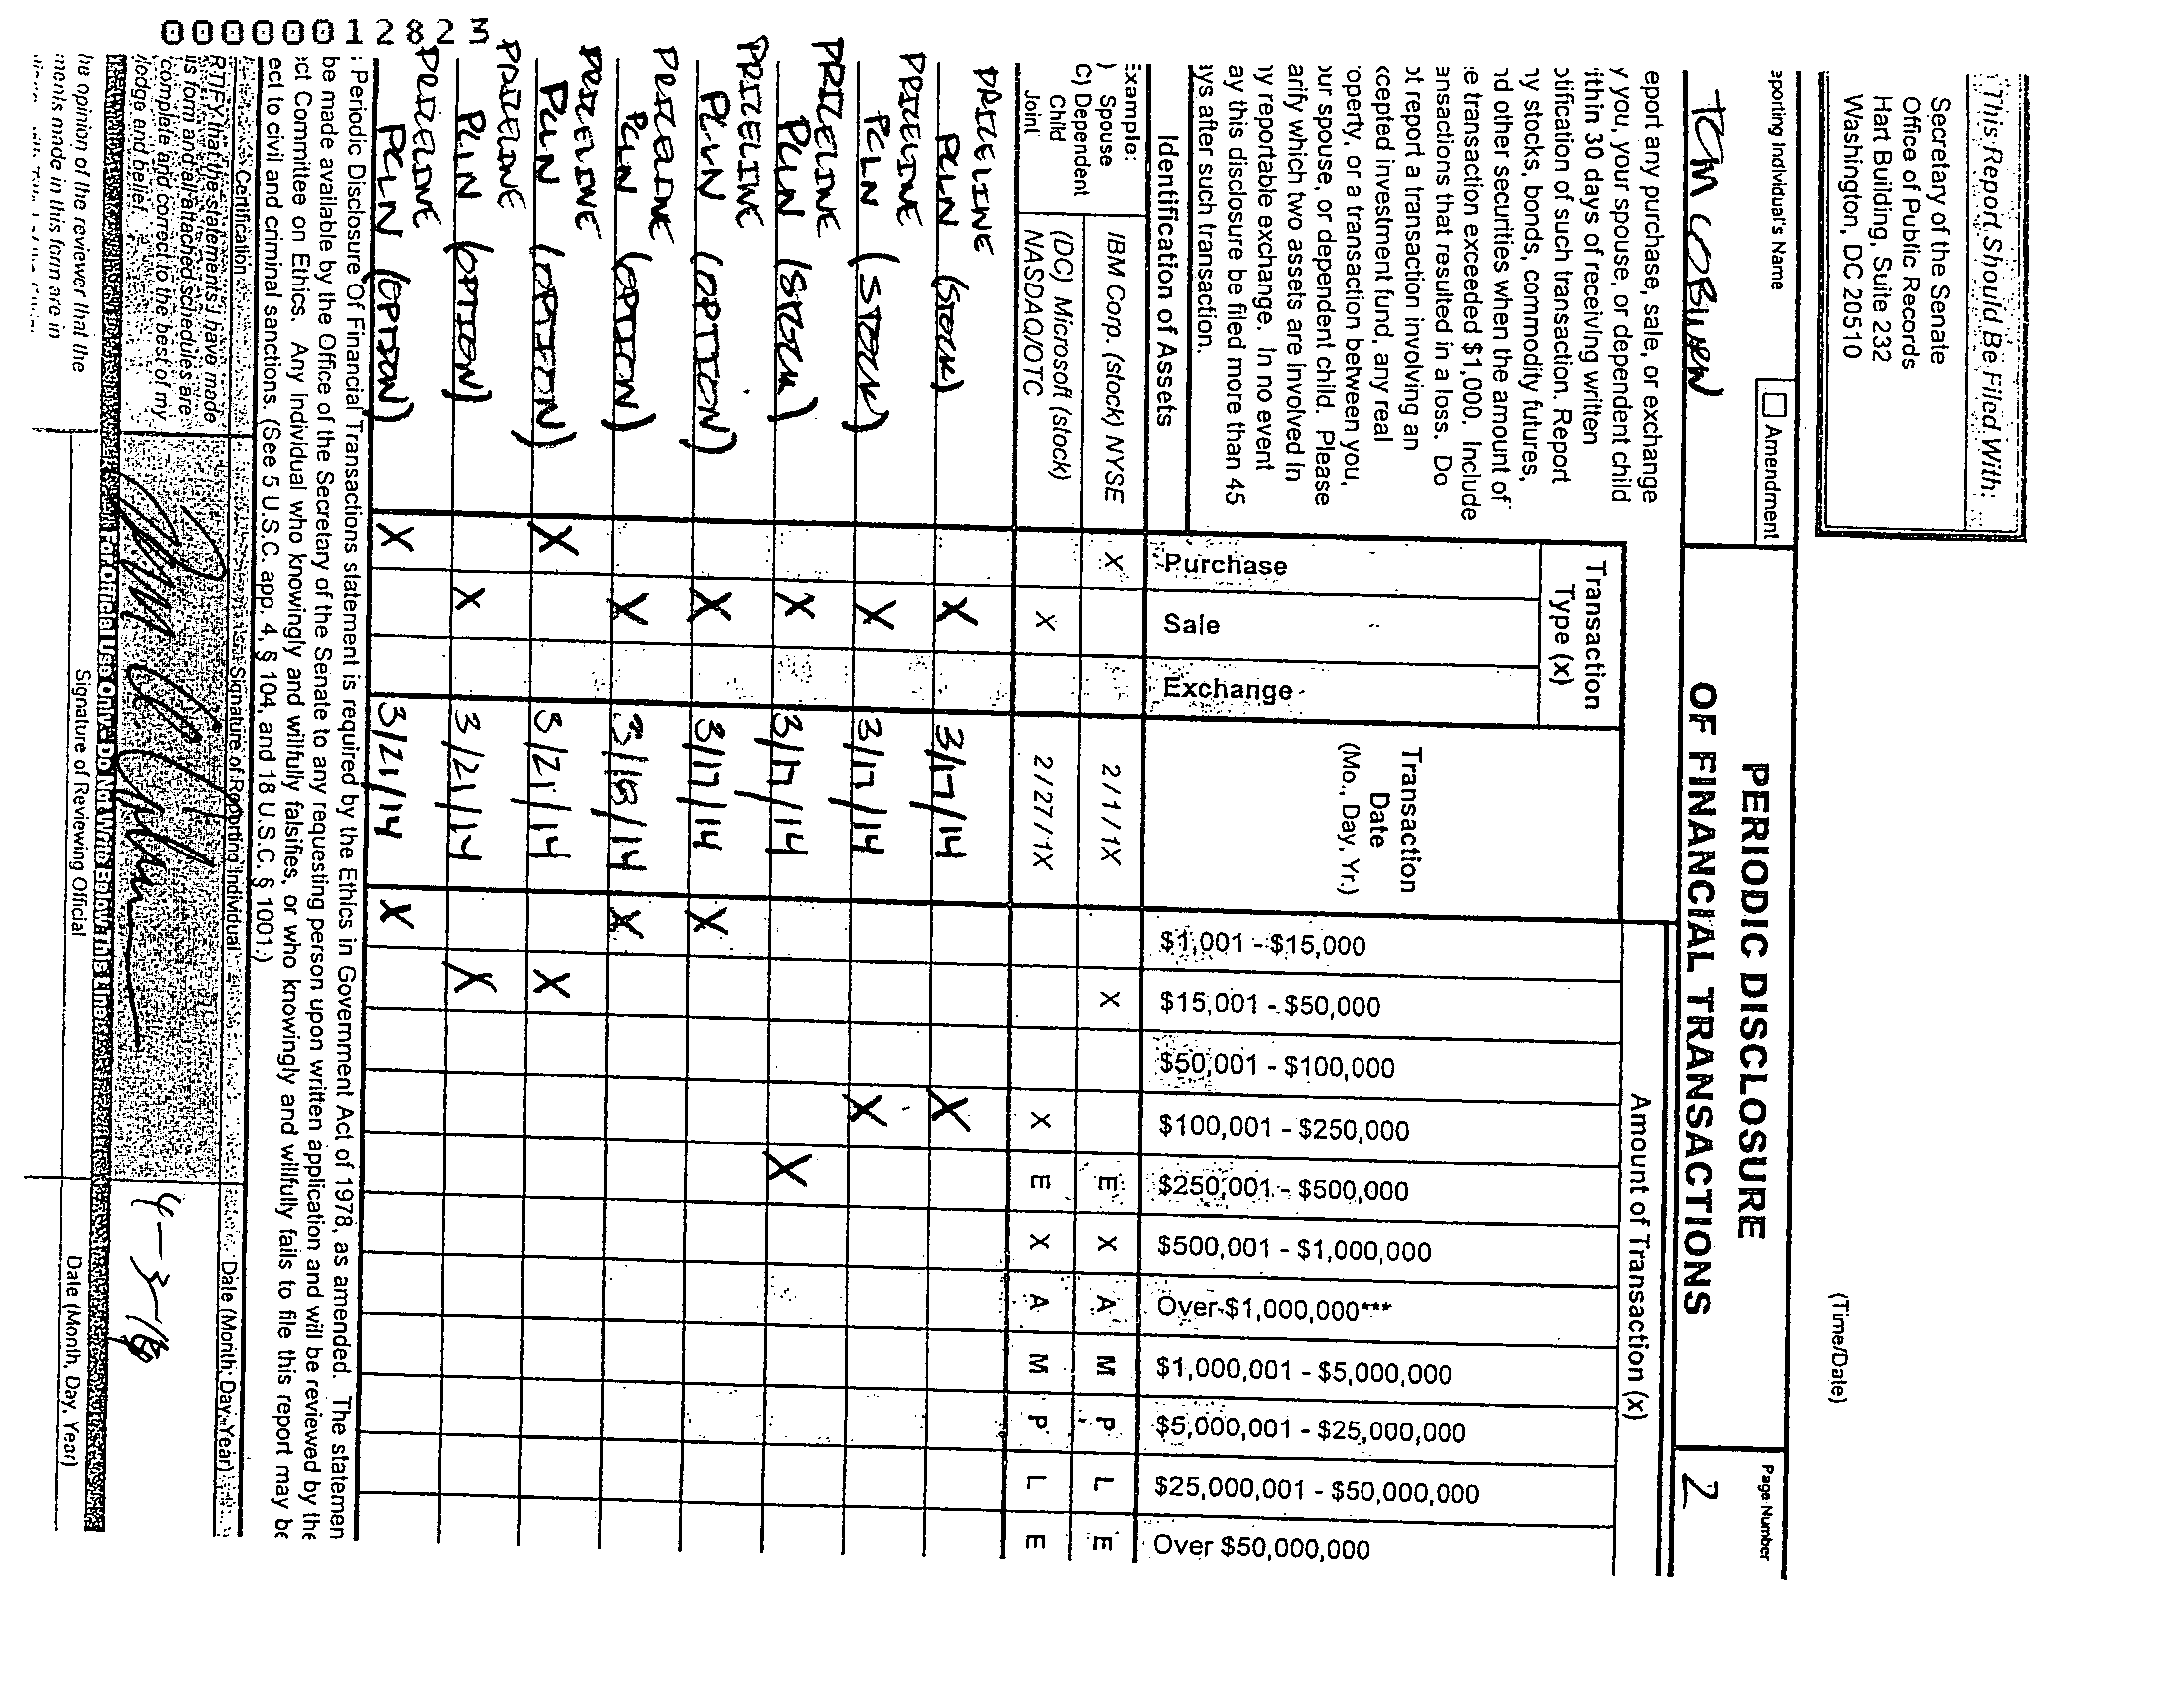 This Report Should Be Filed With:
Secretary of the Senate
Office of Public Records
Hart Building, Suite 232
Washington, DC 20510
(Time/Date)
eporting Individual's Name
Amendment
TOM COBURN
PERIODIC DISCLOSURE
OF FINANCIAL TRANSACTIONS
Page Number
2
eport any purchase, sale, or exchange
y you, your spouse, or dependent child
ithin 30 days of receiving written
otification of such transaction. Report
ny stocks, bonds, commodity futures,
nd other securities when the amount of
e transaction exceeded $1,000. Include
ansactions that resulted in a loss. Do
ot report a transaction involving an
xcepted investment fund, any real
operty, or a transaction between you,
our spouse, or dependent child. Please
arify which two assets are involved in
ny reportable exchange. In no event
ay this disclosure be filed more than 45
ays after such transaction.
Identification of Assets
Transaction
Type (x)
Purchase
Sale
Exchange
Transaction
Date
(Mo., Day, Yr.)
Amount of Transaction (x)
$1,001 - $15,000
$15,001 - $50,000
$50,001 - $100,000
$100,001 - $250,000
$250,001 - $500,000
$500,001 - $1,000,000
Over $1,000,000***
$1,000,001 - $5,000,000
$5,000,001 - $25,000,000
$25,000,001 - $50,000,000
Over $50,000,000
Example:
) Spouse
C) Dependent
Child
Joint
IBM Corp. (stock) NYSE X 2/1/1X X E X A M P L E
(DC) Microsoft (stock)
NASDAQ/OTC X 2/27/1X X E X A M P L E
PRICELINE
PCLN (STOCK) X 3/17/14 X
PRICELINE
PCLN (STOCK) X 3/17/14 X
PRICELINE
PCLN (STOCK) X 3/17/14 X
PRICELINE
PCLN (OPTION) X 3/17/14 X
PRICELINE
PCLN (OPTION) X 3/18/14 X
PRICELINE
PCLN (OPTION) X 3/21/14 X
PRICELINE
PCLN (OPTION) X 3/21/14 X
PRICELINE
PCLN (OPTION) X 3/21/14 X
: Periodic Disclosure Of Financial Transactions statement is required by the Ethics in Government Act of 1978, as amended. The statemen
be made available by the Office of the Secretary of the Senate to any requesting person upon written application and will be reviewed by the
ct Committee on Ethics. Any Individual who knowingly and willfully falsifies, or who knowingly and willfully fails to file this report may be
ect to civil and criminal sanctions. (See 5 U.S.C. app. 4, § 104, and 18 U.S.C. § 1001.)
Certification
Signature of Reporting Individual
Date (Month, Day, Year)
RTIFY that the statements I have made
is form and all attached schedules are
complete and correct to the best of my
ledge and belief.
4-3-14
For Official Use Only - Do Not Write Below This Line
he opinion of the reviewer that the
ments made in this form are in
Signature of Reviewing Official
Date (Month, Day, Year)
000000012823